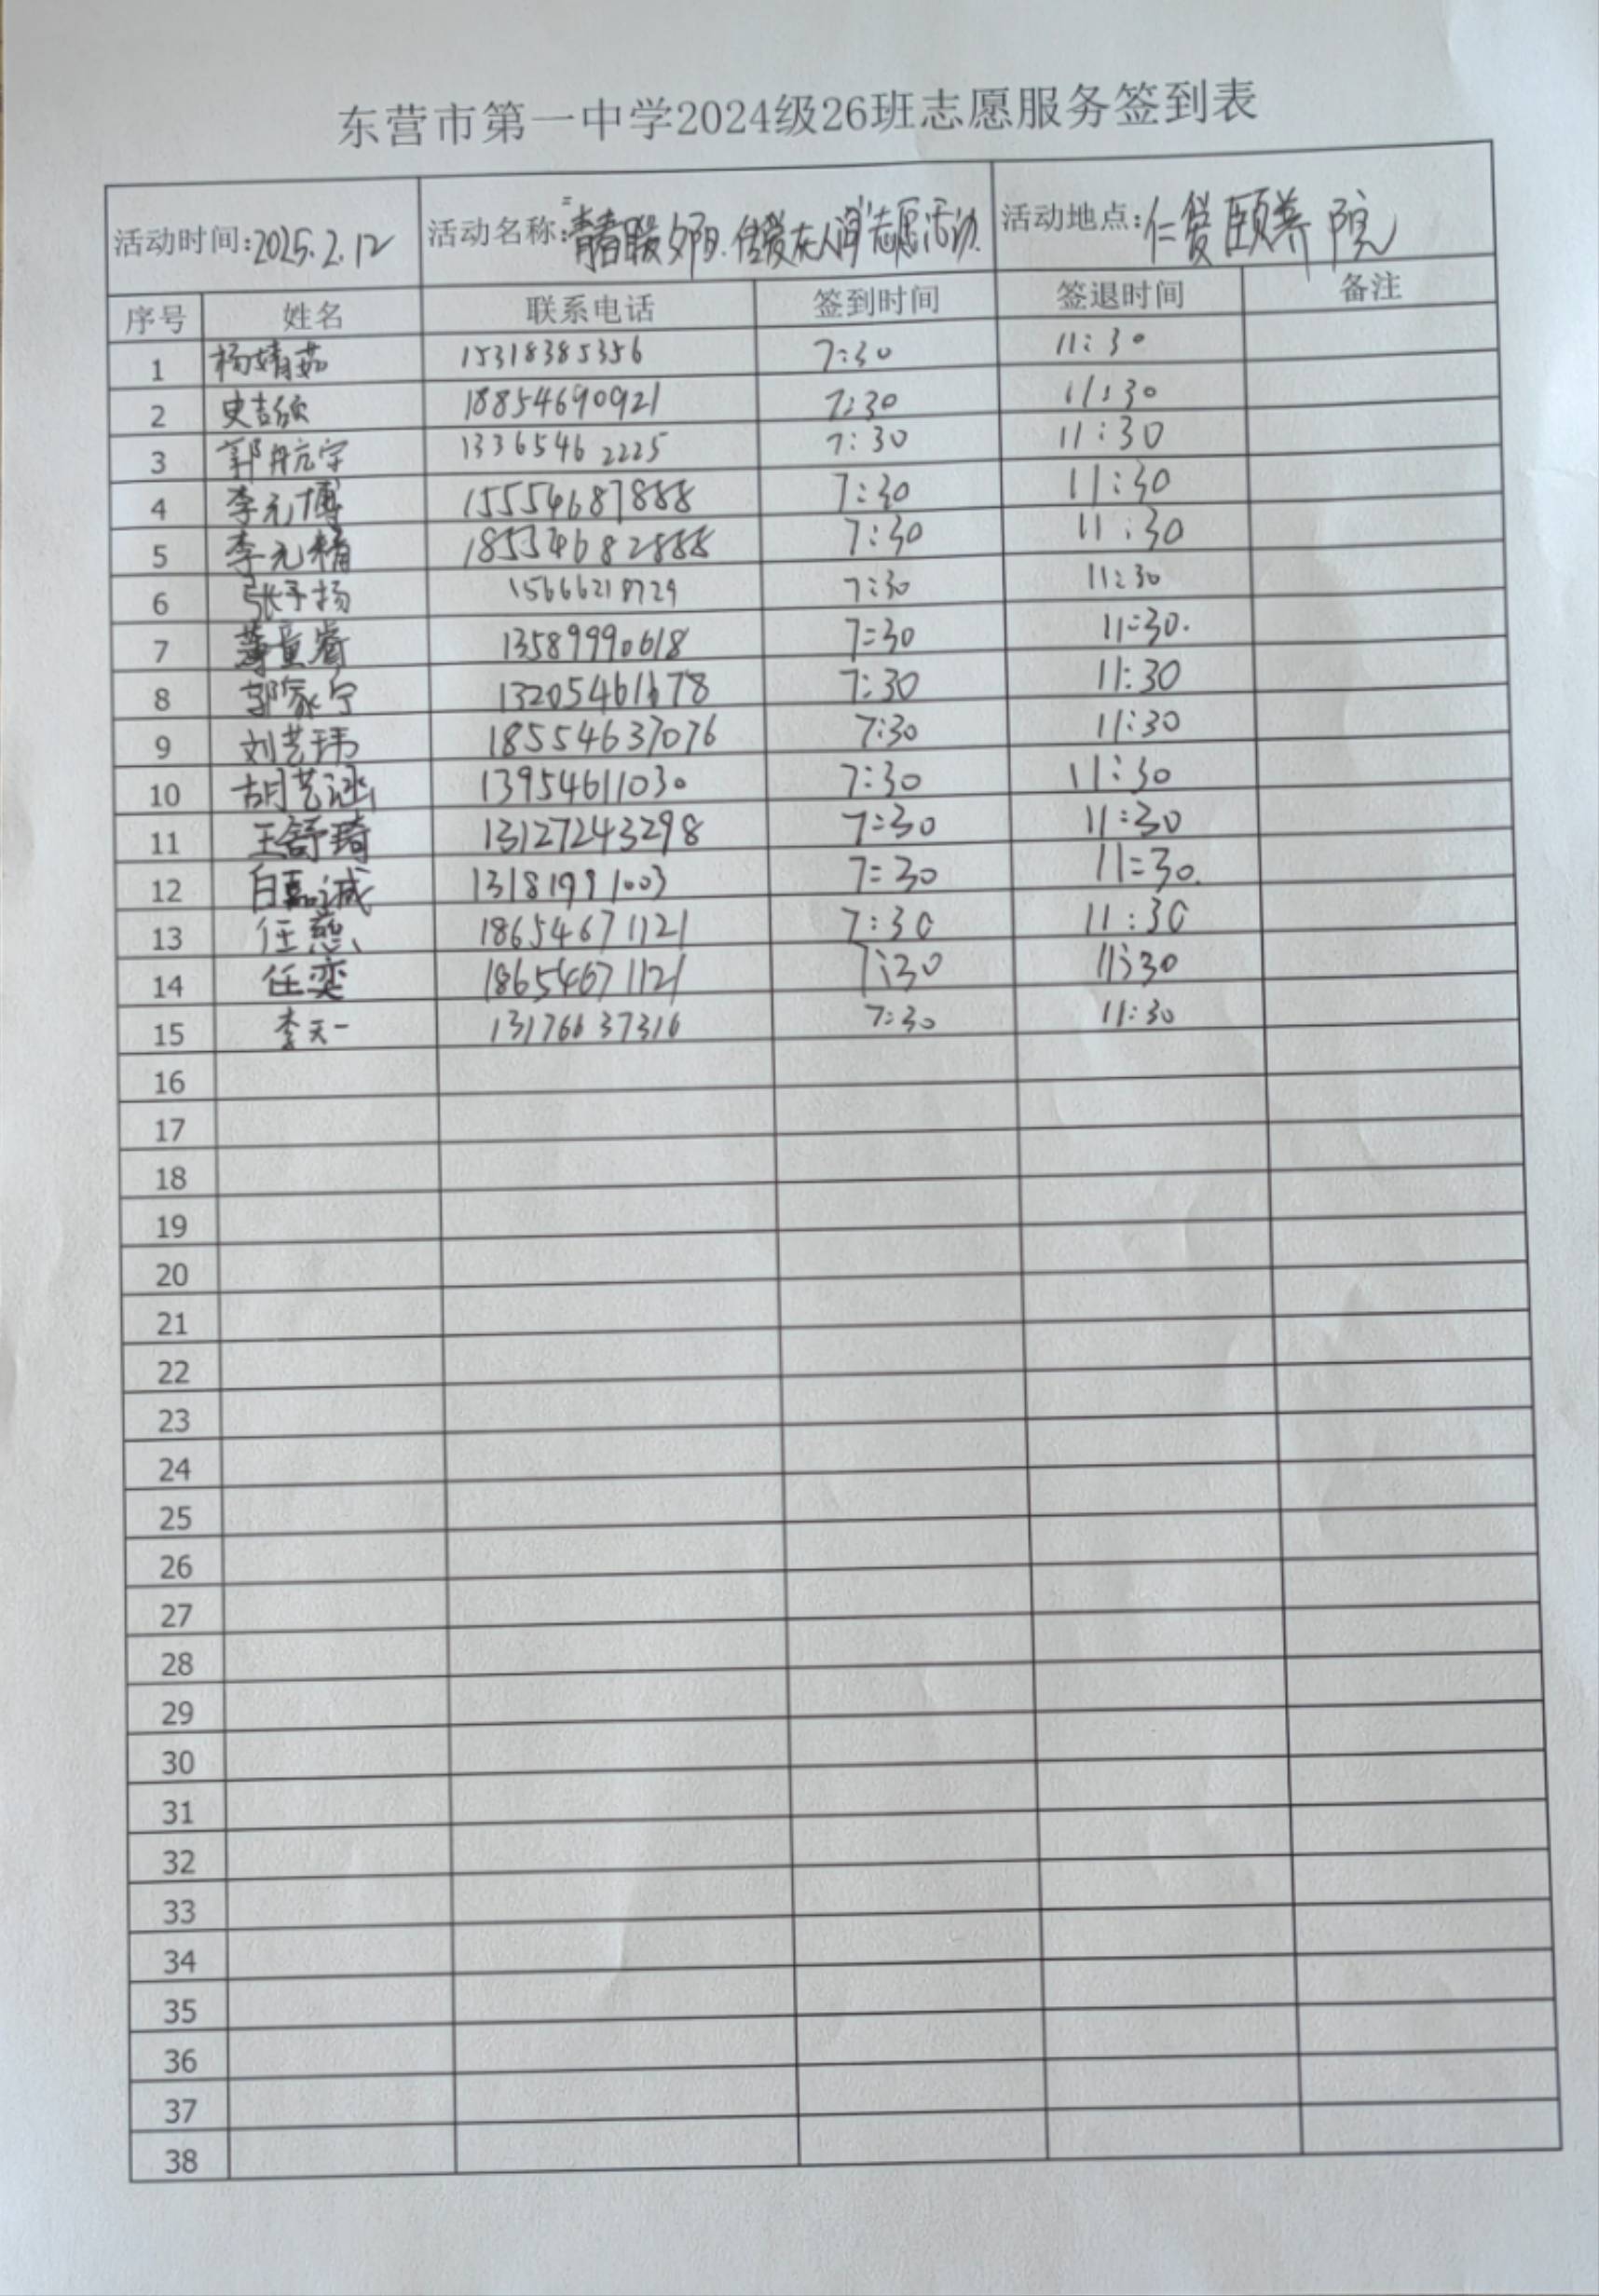 东营市第一中学2024级26班志愿服务签到表
活动时间:2025.2.12 活动名称:"青春暖夕阳.传爱在人间"志愿活动. 活动地点:仁爱颐养院
序号 姓名 联系电话 签到时间 签退时间 备注
1 杨婧茹 15318385356 7:30 11:30
2 史吉欣 18854690921 7:30 11:30
3 郭航宇 13365462225 7:30 11:30
4 李元博 15554687888 7:30 11:30
5 李元精 18554682888 7:30 11:30
6 张予扬 15666218729 7:30 11:30
7 13589990618 7:30 11:30.
8 郭家宁 13205461678 7:30 11:30
9 刘艺玮 18554637076 7:30 11:30
10 胡艺涵 13954611030 7:30 11:30
11 王舒琦 13127243298 7:30 11:30
12 白嘉诚 13181991003 7:30 11:30.
13 任 18654671121 7:30 11:30
14 任奕 18654671121 7:30 11:30
15 李天一 13176637316 7:30 11:30
16
17
18
19
20
21
22
23
24
25
26
27
28
29
30
31
32
33
34
35
36
37
38